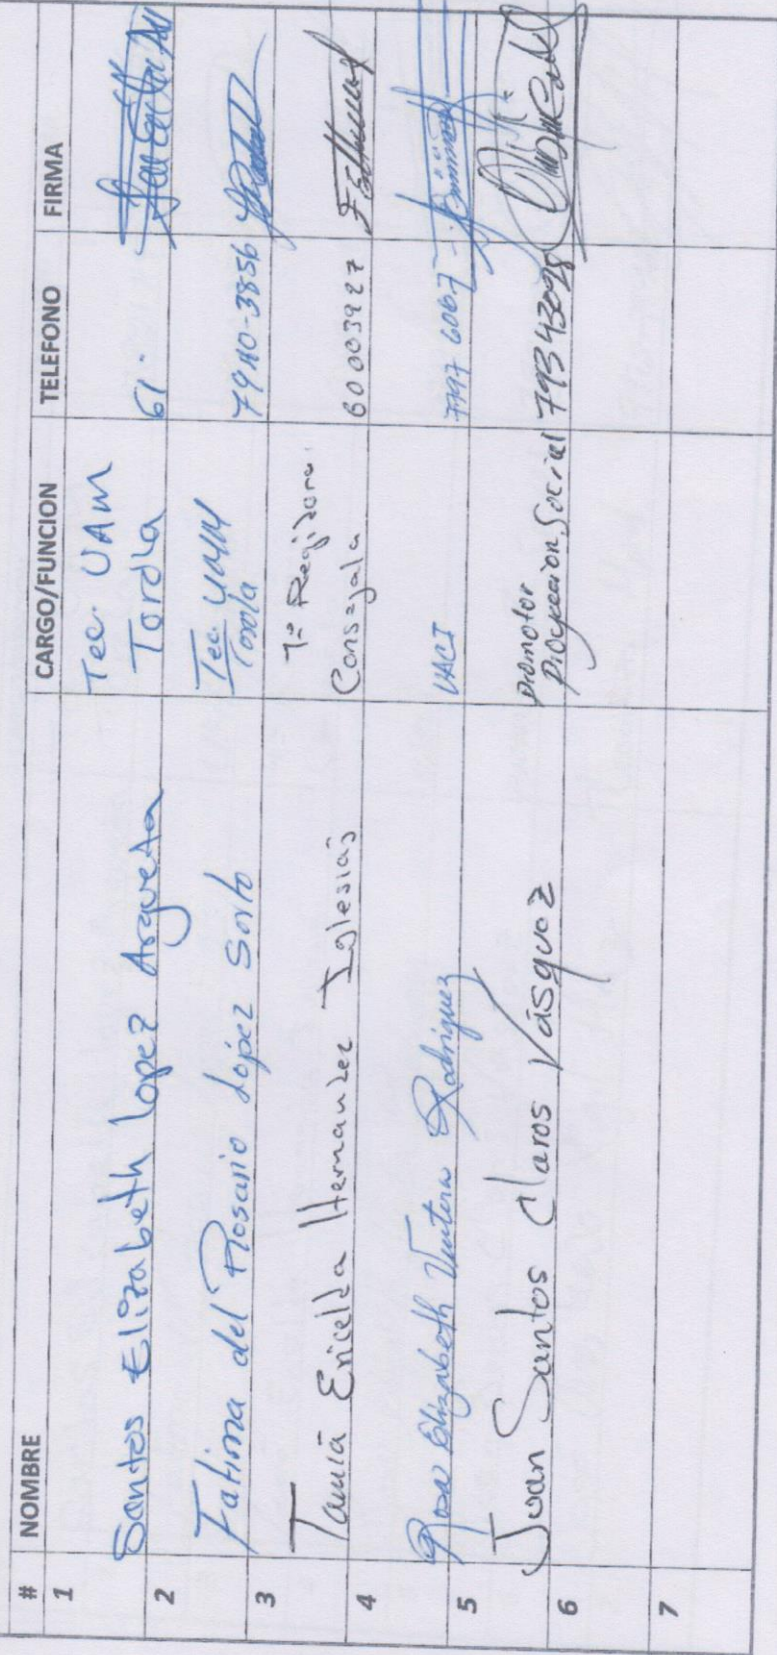 # NOMBRE CARGO/FUNCION TELEFONO FIRMA
1 Santos Elizabeth Lopez Argueta Tec. UAM Torola 61.
2 Fatima del Rosario López Sorto Tec. UMM Torola 7940-3856
3 Tania Ericelda Hernandez Iglesias 1ª Regidora Consejala 60003927
4 Rosa Elizabeth Ventura Rodriguez UACI 7797 6067
5 Juan Santos Claros Vásquez promotor Proyeccion Social 79343098
6
7